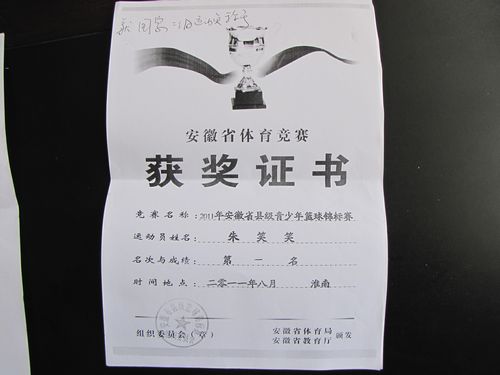 获国家二级运动员称号
安徽省体育竞赛
获奖证书
竞赛名称：2011年安徽省县级青少年篮球锦标赛
运动员姓名：朱笑笑
名次与成绩：第一名
时间地点：二零一一年八月 淮南
组织委员会（章）
安徽省体育局
安徽省教育厅 颁发